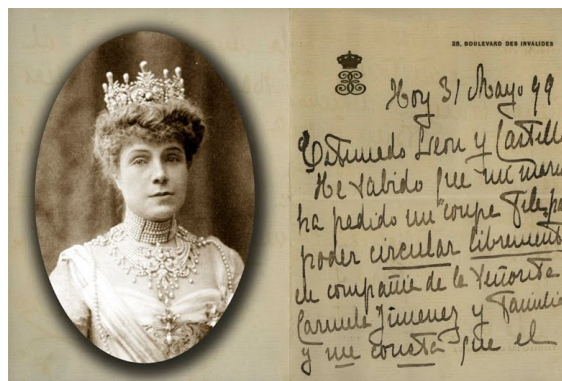 28, BOULEVARD DES INVALIDES
Hoy 31 Mayo 99
Estimado Leon y Castill
He sabido que mi mari
ha pedido un "coupe file" pa
poder circular librement
en compañia de la Señorita
Carmela Jimenez y familia
y me consta que el